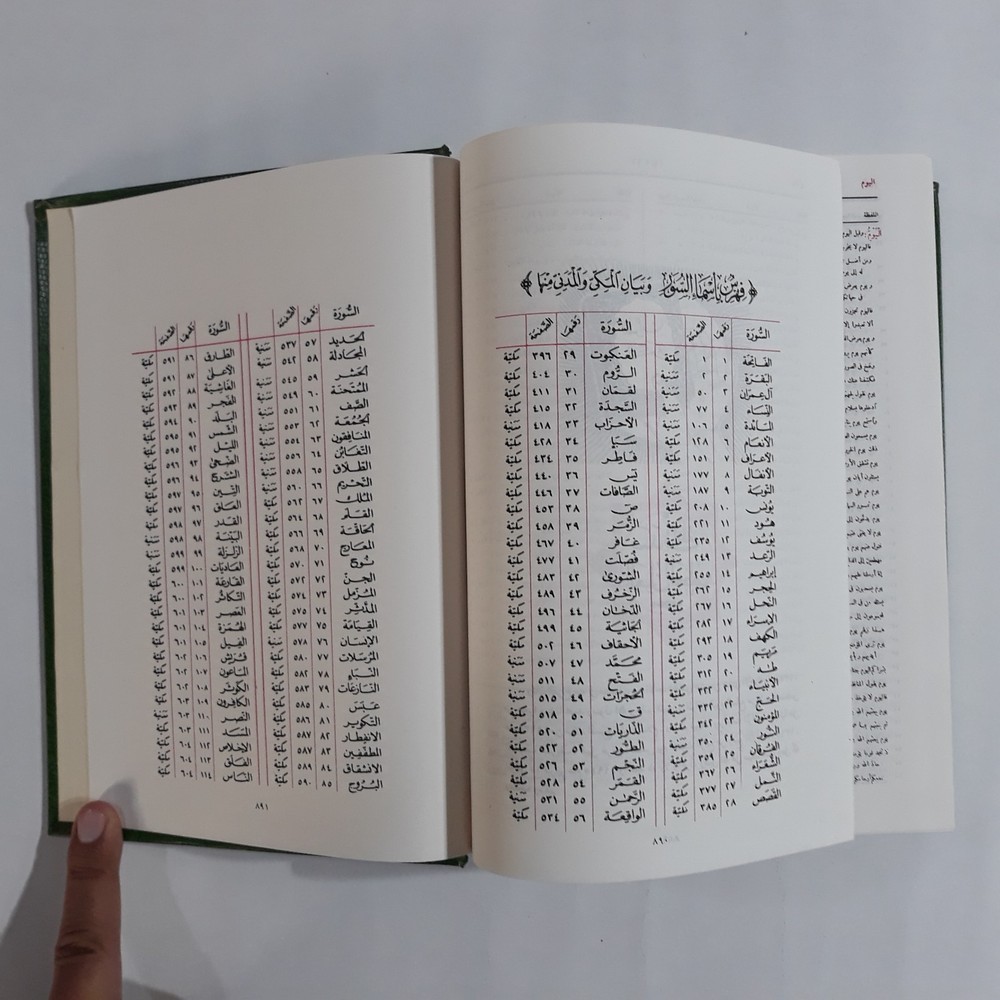 اليوم
اللفظة
﴿ فهرس بأسماء السور وبيان المكي والمدني منها ﴾
السورة رقمها الصحيفة
الفاتحة ١ ١ مكية
البقرة ٢ ٢ مدنية
آل عمران ٣ ٥٠ مدنية
النساء ٤ ٧٧ مدنية
المائدة ٥ ١٠٦ مدنية
الأنعام ٦ ١٢٨ مكية
الأعراف ٧ ١٥١ مكية
الأنفال ٨ ١٧٧ مدنية
التوبة ٩ ١٨٧ مدنية
يونس ١٠ ٢٠٨ مكية
هود ١١ ٢٢١ مكية
يوسف ١٢ ٢٣٥ مكية
الرعد ١٣ ٢٤٩ مدنية
إبراهيم ١٤ ٢٥٥ مكية
الحجر ١٥ ٢٦٢ مكية
النحل ١٦ ٢٦٧ مكية
الإسراء ١٧ ٢٨٢ مكية
الكهف ١٨ ٢٩٣ مكية
مريم ١٩ ٣٠٥ مكية
طه ٢٠ ٣١٢ مكية
الأنبياء ٢١ ٣٢٢ مكية
الحج ٢٢ ٣٣٢ مدنية
المؤمنون ٢٣ ٣٤٢ مكية
النور ٢٤ ٣٥٠ مدنية
الفرقان ٢٥ ٣٥٩ مكية
الشعراء ٢٦ ٣٦٧ مكية
النمل ٢٧ ٣٧٧ مكية
القصص ٢٨ ٣٨٥ مكية
السورة رقمها الصحيفة
العنكبوت ٢٩ ٣٩٦ مكية
الروم ٣٠ ٤٠٤ مكية
لقمان ٣١ ٤١١ مكية
السجدة ٣٢ ٤١٥ مكية
الأحزاب ٣٣ ٤١٨ مدنية
سبأ ٣٤ ٤٢٨ مكية
فاطر ٣٥ ٤٣٤ مكية
يس ٣٦ ٤٤٠ مكية
الصافات ٣٧ ٤٤٦ مكية
ص ٣٨ ٤٥٣ مكية
الزمر ٣٩ ٤٥٨ مكية
غافر ٤٠ ٤٦٧ مكية
فصلت ٤١ ٤٧٧ مكية
الشورى ٤٢ ٤٨٣ مكية
الزخرف ٤٣ ٤٨٩ مكية
الدخان ٤٤ ٤٩٦ مكية
الجاثية ٤٥ ٤٩٩ مكية
الأحقاف ٤٦ ٥٠٢ مكية
محمد ٤٧ ٥٠٧ مدنية
الفتح ٤٨ ٥١١ مدنية
الحجرات ٤٩ ٥١٥ مدنية
ق ٥٠ ٥١٨ مكية
الذاريات ٥١ ٥٢٠ مكية
الطور ٥٢ ٥٢٣ مكية
النجم ٥٣ ٥٢٦ مكية
القمر ٥٤ ٥٢٨ مكية
الرحمن ٥٥ ٥٣١ مدنية
الواقعة ٥٦ ٥٣٤ مكية
٨٩٠
السورة رقمها الصحيفة
الحديد ٥٧ ٥٣٧ مدنية
المجادلة ٥٨ ٥٤٢ مدنية
الحشر ٥٩ ٥٤٥ مدنية
الممتحنة ٦٠ ٥٤٩ مدنية
الصف ٦١ ٥٥١ مدنية
الجمعة ٦٢ ٥٥٣ مدنية
المنافقون ٦٣ ٥٥٤ مدنية
التغابن ٦٤ ٥٥٦ مدنية
الطلاق ٦٥ ٥٥٨ مدنية
التحريم ٦٦ ٥٦٠ مدنية
الملك ٦٧ ٥٦٢ مكية
القلم ٦٨ ٥٦٤ مكية
الحاقة ٦٩ ٥٦٦ مكية
المعارج ٧٠ ٥٦٨ مكية
نوح ٧١ ٥٧٠ مكية
الجن ٧٢ ٥٧٢ مكية
المزمل ٧٣ ٥٧٤ مكية
المدثر ٧٤ ٥٧٥ مكية
القيامة ٧٥ ٥٧٧ مكية
الإنسان ٧٦ ٥٧٨ مدنية
المرسلات ٧٧ ٥٨٠ مكية
النبأ ٧٨ ٥٨٢ مكية
النازعات ٧٩ ٥٨٣ مكية
عبس ٨٠ ٥٨٥ مكية
التكوير ٨١ ٥٨٦ مكية
الانفطار ٨٢ ٥٨٧ مكية
المطففين ٨٣ ٥٨٧ مكية
الانشقاق ٨٤ ٥٨٩ مكية
البروج ٨٥ ٥٩٠ مكية
السورة رقمها الصحيفة
الطارق ٨٦ ٥٩١ مكية
الأعلى ٨٧ ٥٩١ مكية
الغاشية ٨٨ ٥٩٢ مكية
الفجر ٨٩ ٥٩٣ مكية
البلد ٩٠ ٥٩٤ مكية
الشمس ٩١ ٥٩٥ مكية
الليل ٩٢ ٥٩٥ مكية
الضحى ٩٣ ٥٩٦ مكية
الشرح ٩٤ ٥٩٦ مكية
التين ٩٥ ٥٩٧ مكية
العلق ٩٦ ٥٩٧ مكية
القدر ٩٧ ٥٩٨ مكية
البينة ٩٨ ٥٩٨ مدنية
الزلزلة ٩٩ ٥٩٩ مدنية
العاديات ١٠٠ ٥٩٩ مكية
القارعة ١٠١ ٦٠٠ مكية
التكاثر ١٠٢ ٦٠٠ مكية
العصر ١٠٣ ٦٠١ مكية
الهمزة ١٠٤ ٦٠١ مكية
الفيل ١٠٥ ٦٠١ مكية
قريش ١٠٦ ٦٠٢ مكية
الماعون ١٠٧ ٦٠٢ مكية
الكوثر ١٠٨ ٦٠٢ مكية
الكافرون ١٠٩ ٦٠٣ مكية
النصر ١١٠ ٦٠٣ مدنية
المسد ١١١ ٦٠٣ مكية
الإخلاص ١١٢ ٦٠٤ مكية
الفلق ١١٣ ٦٠٤ مكية
الناس ١١٤ ٦٠٤ مكية
٨٩١